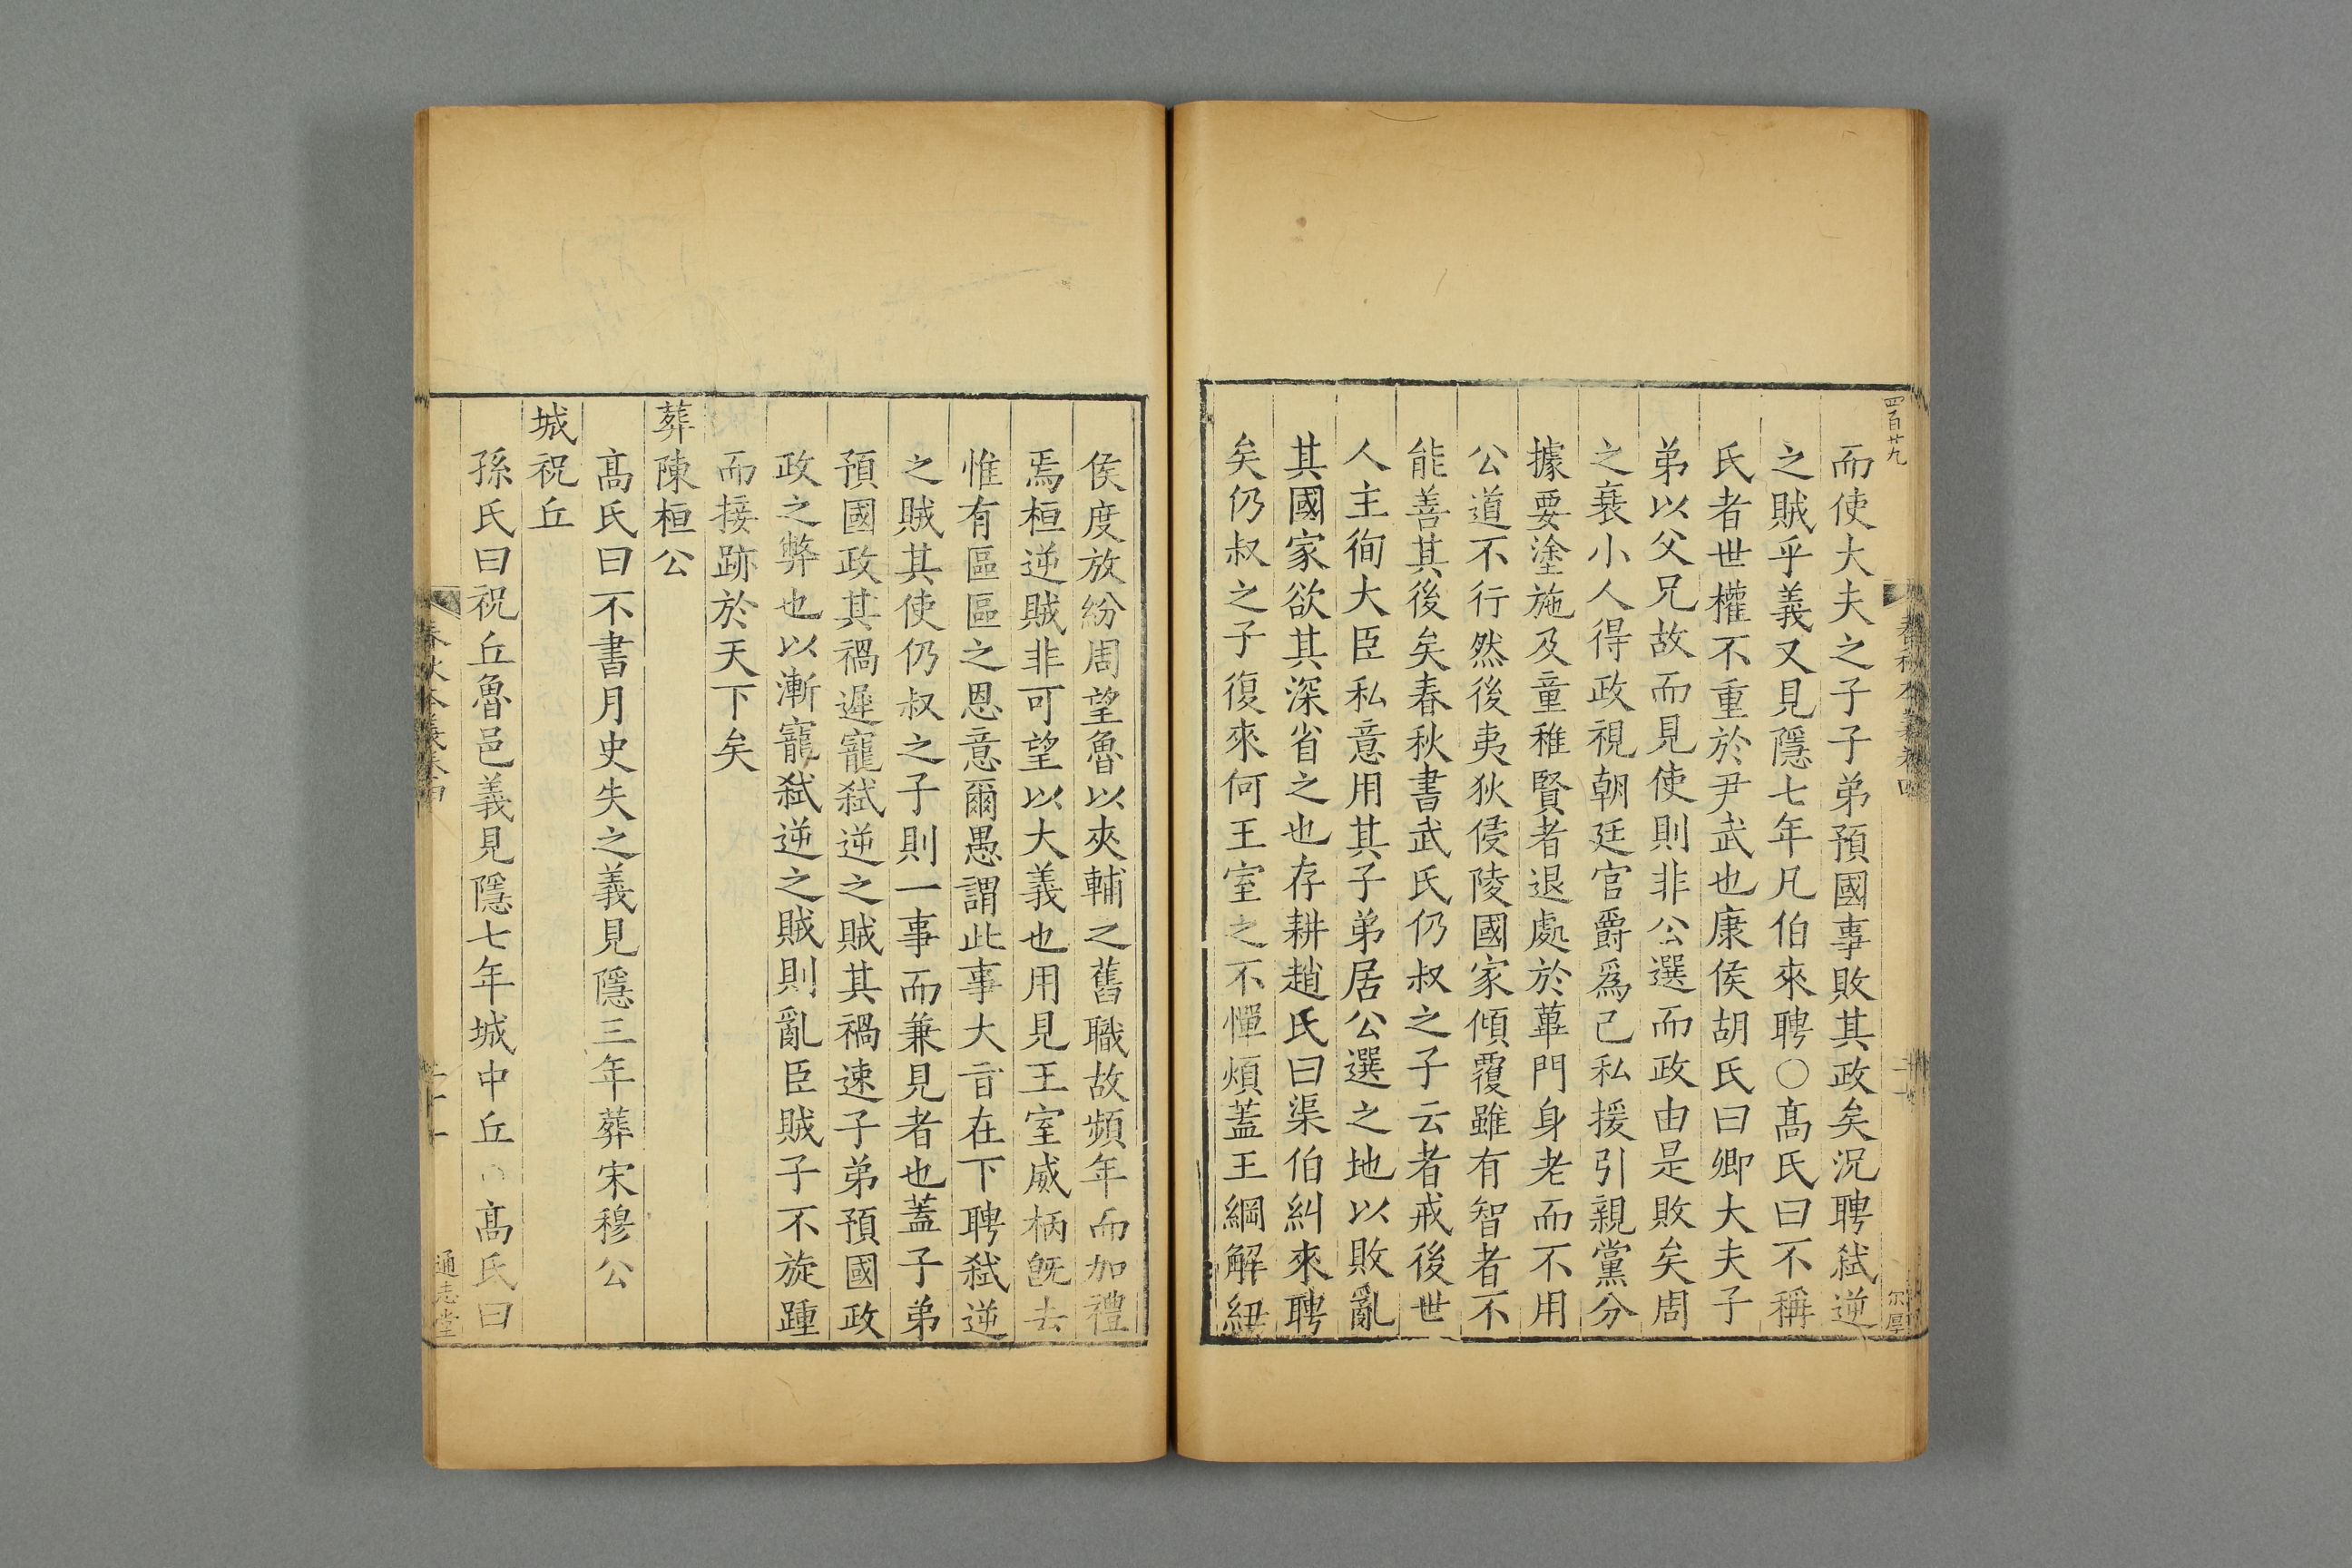 四百廿九
而使大夫之子子弟預國事敗其政矣況聘弑逆
之賊乎義又見隱七年凡伯來聘○髙氏曰不稱
氏者世權不重於尹武也康侯胡氏曰卿大夫子
弟以父兄故而見使則非公選而政由是敗矣周
之衰小人得政視朝廷官爵爲己私援引親黨分
據要塗施及童稚賢者退處於蓽門身老而不用
公道不行然後夷狄侵陵國家傾覆雖有智者不
能善其後矣春秋書武氏仍叔之子云者戒後世
人主徇大臣私意用其子弟居公選之地以敗亂
其國家欲其深省之也存耕趙氏曰渠伯糾來聘
矣仍叔之子復來何王室之不憚煩蓋王綱解紐
侯度放紛周望魯以夾輔之舊職故頻年而加禮
焉桓逆賊非可望以大義也用見王室威柄旣去
惟有區區之恩意爾愚謂此事大㫖在下聘弑逆
之賊其使仍叔之子則一事而兼見者也蓋子弟
預國政其禍遲寵弑逆之賊其禍速子弟預國政
政之弊也以漸寵弑逆之賊則亂臣賊子不旋踵
而接跡於天下矣
葬陳桓公
髙氏曰不書月史失之義見隱三年葬宋穆公
城祝丘
孫氏曰祝丘魯邑義見隱七年城中丘○髙氏曰
春秋本義卷四
二十一
通志堂